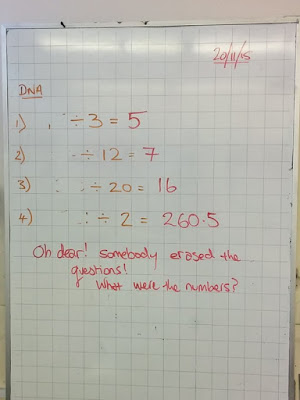 20/11/15
DNA
1) ÷ 3 = 5
2) ÷ 12 = 7
3) ÷ 20 = 16
4) ÷ 2 = 260.5
Oh dear! Somebody erased the
questions!
What were the numbers?